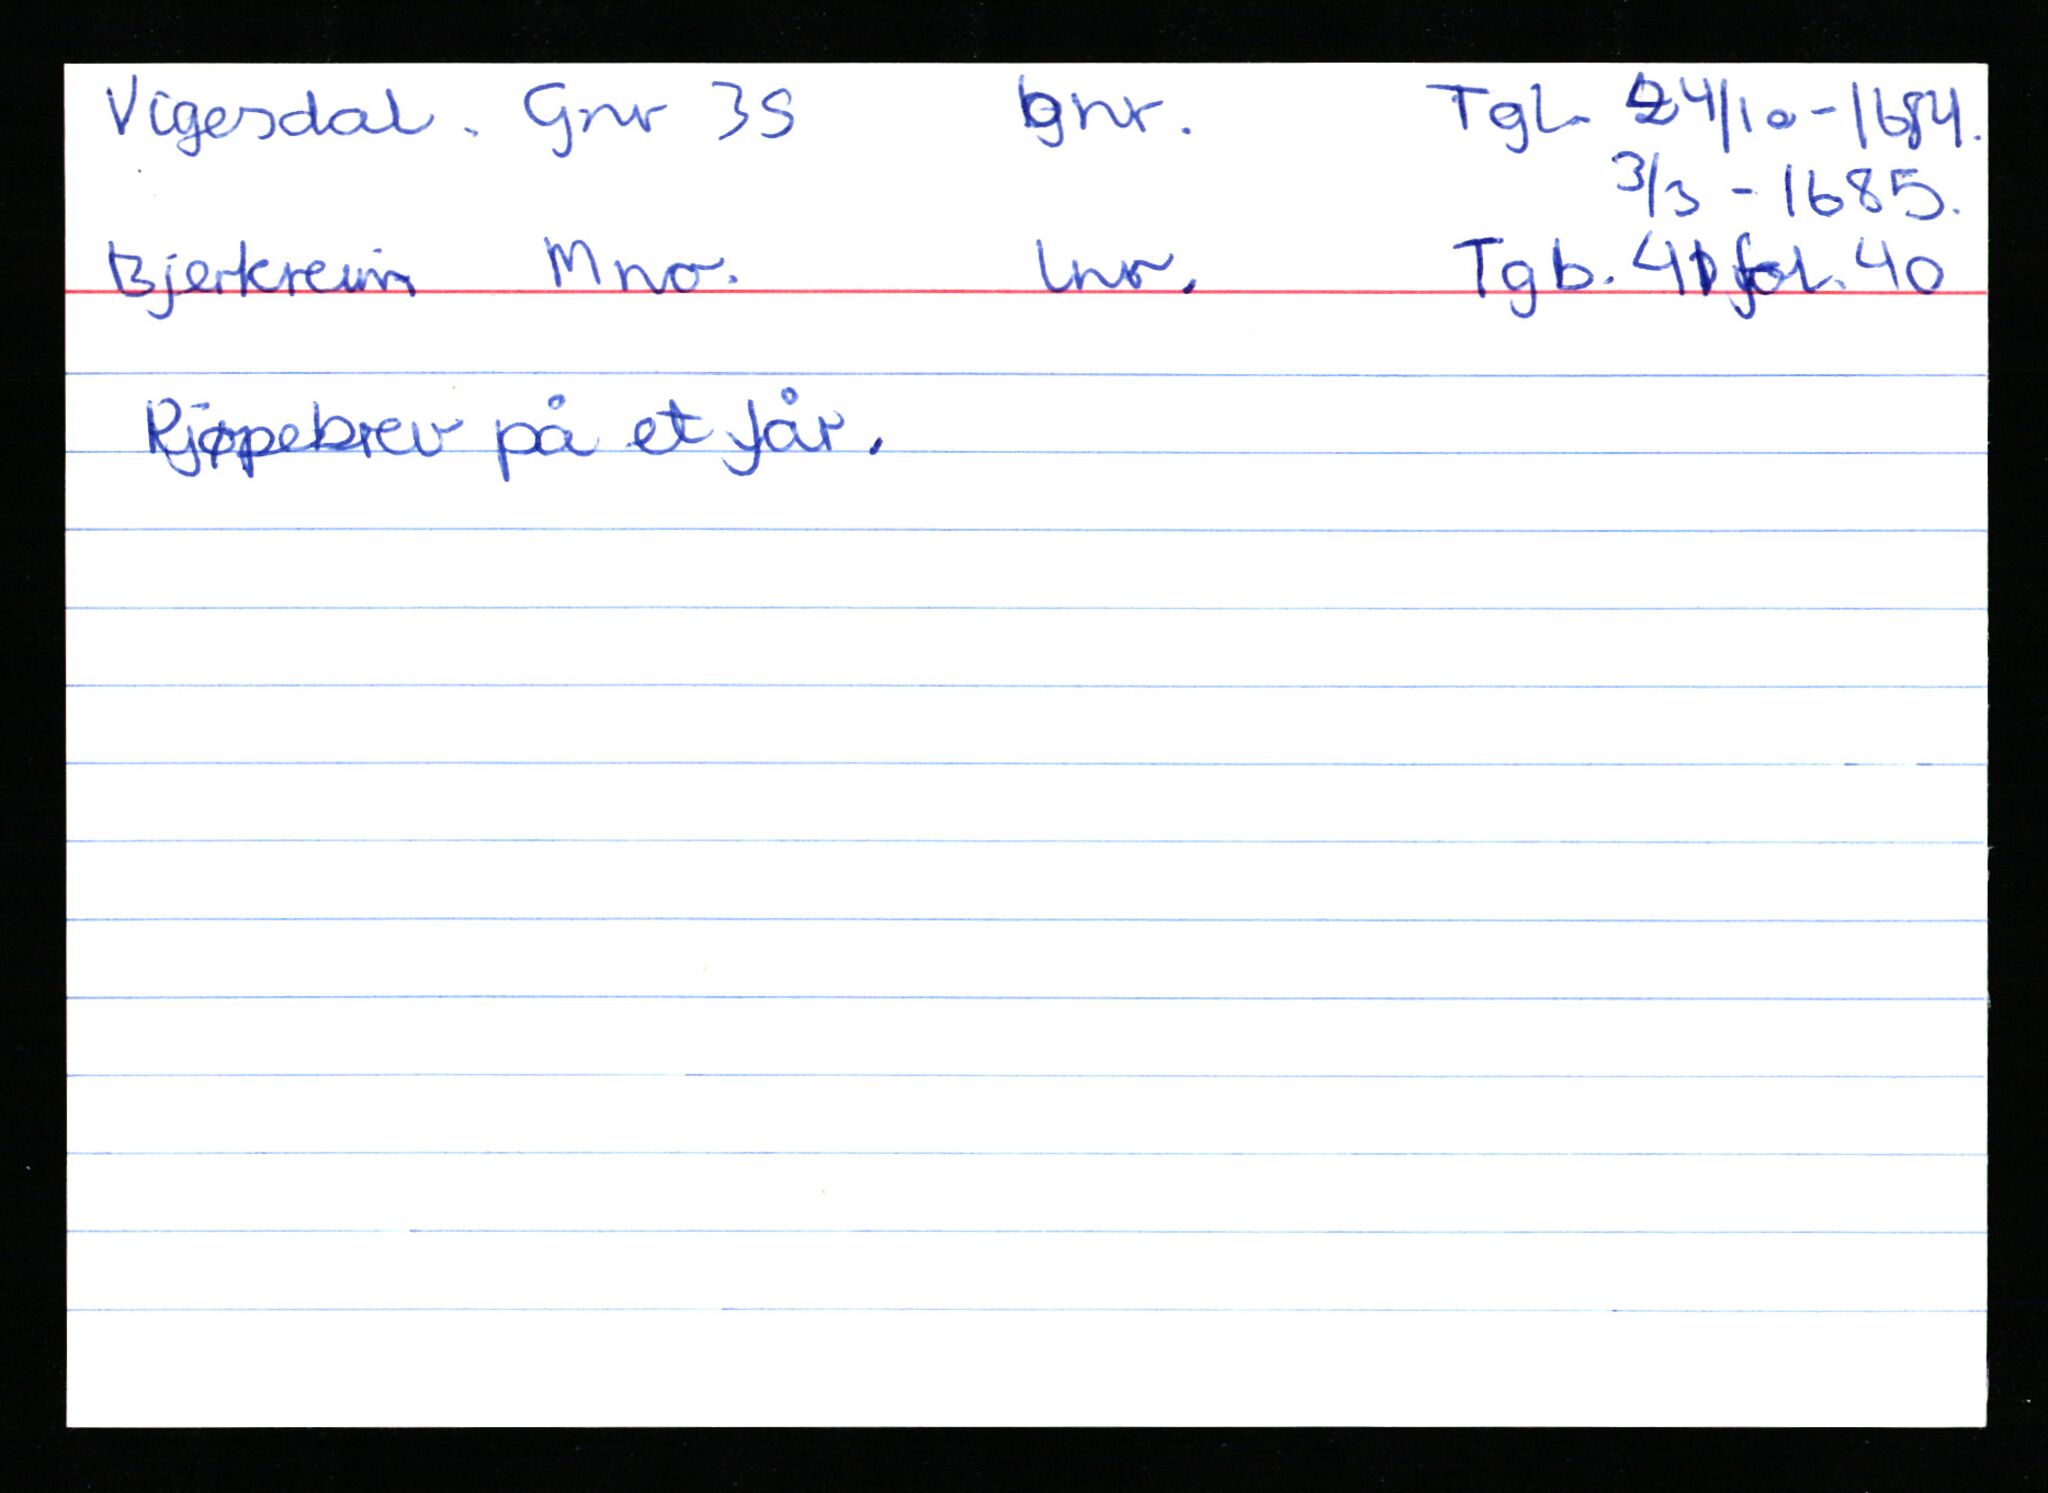 Vigesdal. Gnr 35 bnr. Tgl. 24/10-1684.
3/3 - 1685.
Bjerkreim Mno. lnr. Tgb. 41 fol. 40
Kjøpebrev på et får.